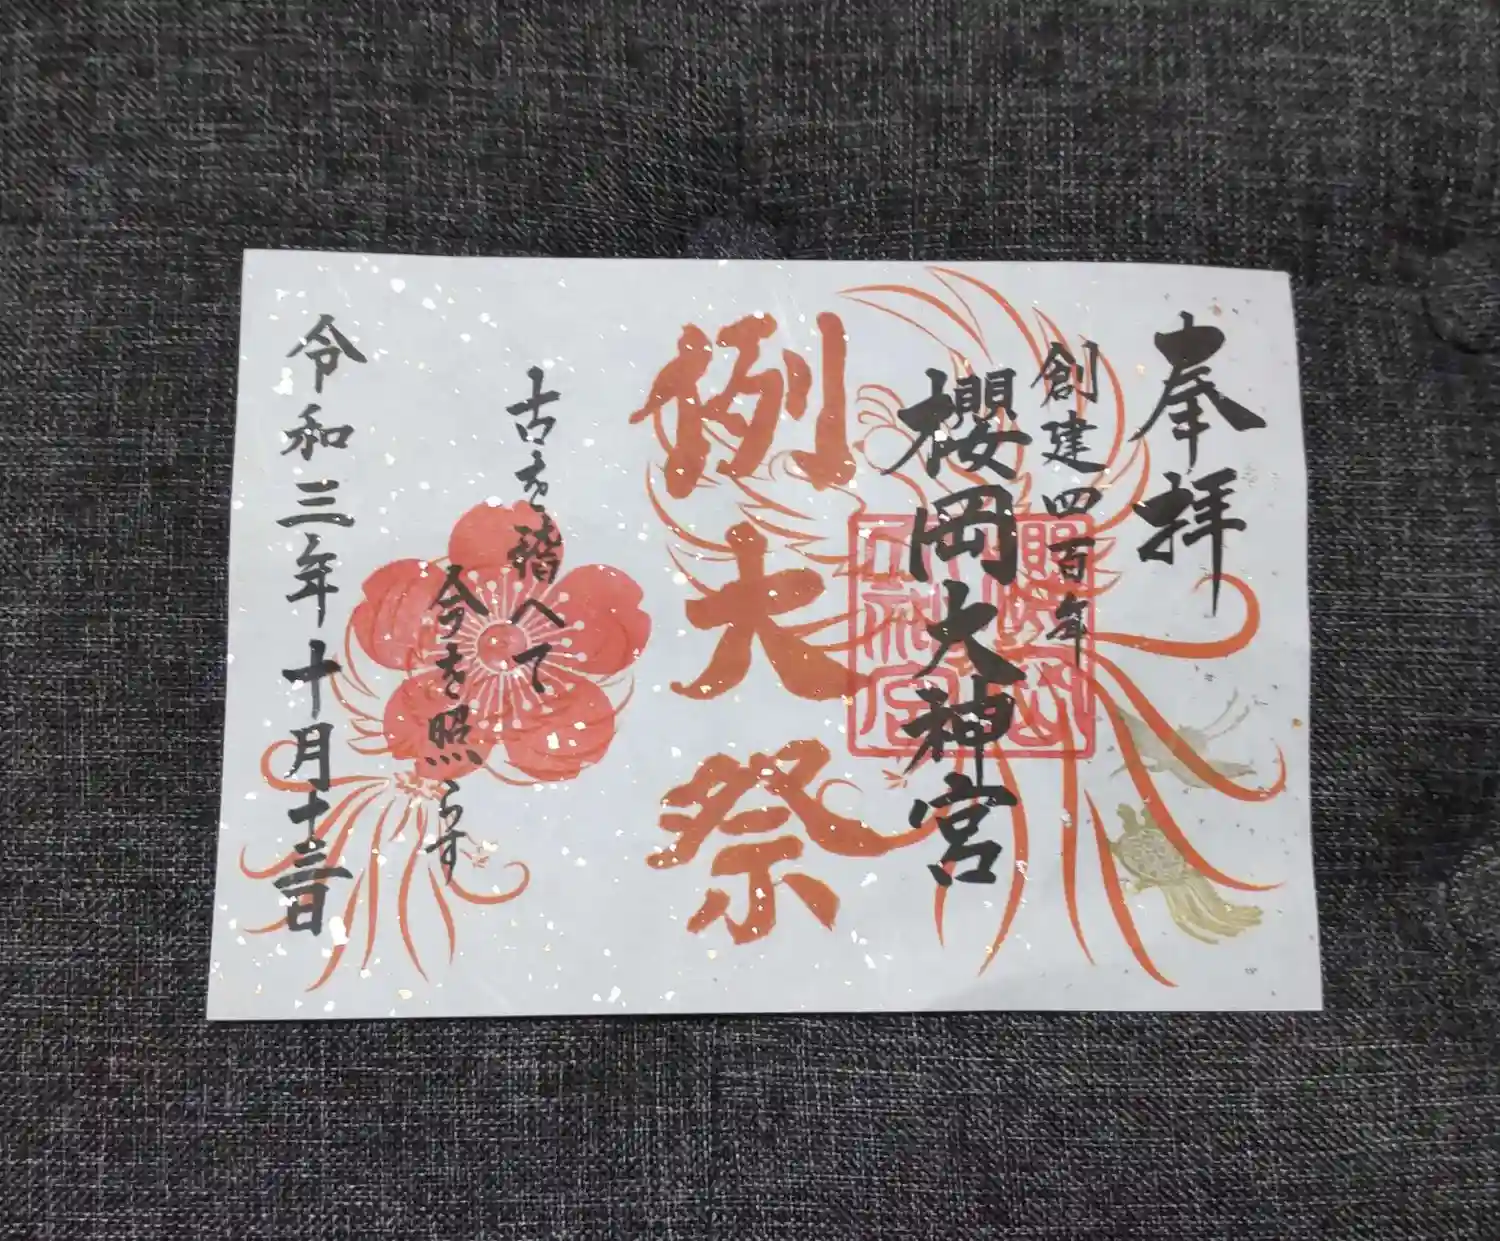 奉拝
創建四百年
櫻岡大神宮
例大祭
古を稽へて
今を照らす
令和三年十月十三日